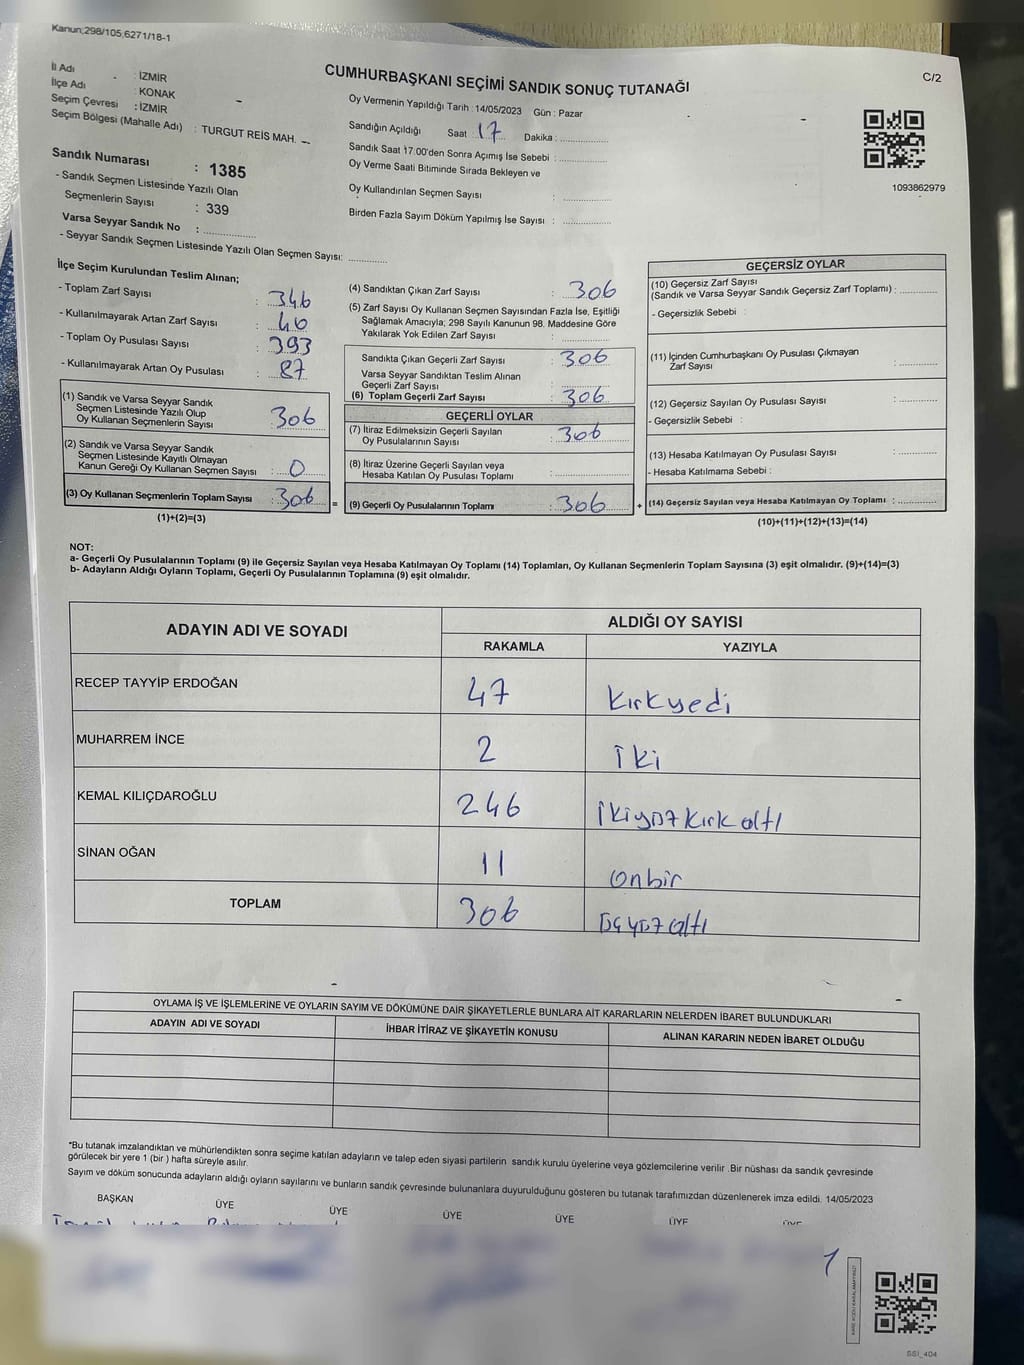 Kanun;298/105;6271/18-1
CUMHURBAŞKANI SEÇİMİ SANDIK SONUÇ TUTANAĞI
C/2
İl Adı : İZMİR
İlçe Adı : KONAK
Seçim Çevresi : İZMİR
Seçim Bölgesi (Mahalle Adı) : TURGUT REİS MAH.
Sandık Numarası : 1385
- Sandık Seçmen Listesinde Yazılı Olan
Seçmenlerin Sayısı : 339
Varsa Seyyar Sandık No :
- Seyyar Sandık Seçmen Listesinde Yazılı Olan Seçmen Sayısı:
Oy Vermenin Yapıldığı Tarih : 14/05/2023 Gün : Pazar
Sandığın Açıldığı Saat : 17 Dakika :
Sandık Saat 17:00'den Sonra Açımış İse Sebebi :
Oy Verme Saati Bitiminde Sırada Bekleyen ve
Oy Kullandırılan Seçmen Sayısı :
Birden Fazla Sayım Döküm Yapılmış İse Sayısı :
1093862979
İlçe Seçim Kurulundan Teslim Alınan;
- Toplam Zarf Sayısı : 346
- Kullanılmayarak Artan Zarf Sayısı : 40
- Toplam Oy Pusulası Sayısı : 393
- Kullanılmayarak Artan Oy Pusulası : 87
(1) Sandık ve Varsa Seyyar Sandık
Seçmen Listesinde Yazılı Olup
Oy Kullanan Seçmenlerin Sayısı : 306
(2) Sandık ve Varsa Seyyar Sandık
Seçmen Listesinde Kayıtlı Olmayan
Kanun Gereği Oy Kullanan Seçmen Sayısı : 0
(3) Oy Kullanan Seçmenlerin Toplam Sayısı : 306 =
(1)+(2)=(3)
(4) Sandıktan Çıkan Zarf Sayısı : 306
(5) Zarf Sayısı Oy Kullanan Seçmen Sayısından Fazla İse, Eşitliği
Sağlamak Amacıyla; 298 Sayılı Kanunun 98. Maddesine Göre
Yakılarak Yok Edilen Zarf Sayısı :
Sandıkta Çıkan Geçerli Zarf Sayısı : 306
Varsa Seyyar Sandıktan Teslim Alınan
Geçerli Zarf Sayısı :
(6) Toplam Geçerli Zarf Sayısı : 306
GEÇERLİ OYLAR
(7) İtiraz Edilmeksizin Geçerli Sayılan
Oy Pusulalarının Sayısı : 306
(8) İtiraz Üzerine Geçerli Sayılan veya
Hesaba Katılan Oy Pusulası Toplamı :
(9) Geçerli Oy Pusulalarının Toplamı : 306 +
GEÇERSİZ OYLAR
(10) Geçersiz Zarf Sayısı
(Sandık ve Varsa Seyyar Sandık Geçersiz Zarf Toplamı) :
- Geçersizlik Sebebi :
(11) İçinden Cumhurbaşkanı Oy Pusulası Çıkmayan
Zarf Sayısı :
(12) Geçersiz Sayılan Oy Pusulası Sayısı :
- Geçersizlik Sebebi :
(13) Hesaba Katılmayan Oy Pusulası Sayısı :
- Hesaba Katılmama Sebebi :
(14) Geçersiz Sayılan veya Hesaba Katılmayan Oy Toplamı :
(10)+(11)+(12)+(13)=(14)
NOT:
a- Geçerli Oy Pusulalarının Toplamı (9) ile Geçersiz Sayılan veya Hesaba Katılmayan Oy Toplamı (14) Toplamları, Oy Kullanan Seçmenlerin Toplam Sayısına (3) eşit olmalıdır. (9)+(14)=(3)
b- Adayların Aldığı Oyların Toplamı, Geçerli Oy Pusulalarının Toplamına (9) eşit olmalıdır.
ADAYIN ADI VE SOYADI
ALDIĞI OY SAYISI
RAKAMLA YAZIYLA
RECEP TAYYİP ERDOĞAN 47 kırkyedi
MUHARREM İNCE 2 iki
KEMAL KILIÇDAROĞLU 246 ikiyüzkırkaltı
SİNAN OĞAN 11 onbir
TOPLAM 306 üçyüzaltı
OYLAMA İŞ VE İŞLEMLERİNE VE OYLARIN SAYIM VE DÖKÜMÜNE DAİR ŞİKAYETLERLE BUNLARA AİT KARARLARIN NELERDEN İBARET BULUNDUKLARI
ADAYIN ADI VE SOYADI İHBAR İTİRAZ VE ŞİKAYETİN KONUSU ALINAN KARARIN NEDEN İBARET OLDUĞU
*Bu tutanak imzalandıktan ve mühürlendikten sonra seçime katılan adayların ve talep eden siyasi partilerin sandık kurulu üyelerine veya gözlemcilerine verilir .Bir nüshası da sandık çevresinde
görülecek bir yere 1 (bir ) hafta süreyle asılır.
Sayım ve döküm sonucunda adayların aldığı oyların sayılarını ve bunların sandık çevresinde bulunanlara duyurulduğunu gösteren bu tutanak tarafımızdan düzenlenerek imza edildi. 14/05/2023
BAŞKAN ÜYE ÜYE ÜYE ÜYE ÜYE ÜYE
1
SSI_404